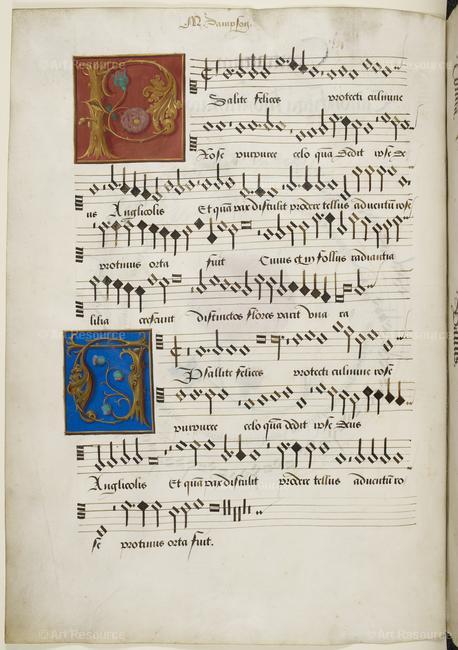 M Sampson.
Psallite felices protecti culmine
Rose purpuree celo quam dedit ipse de
us Anglicolis Et quam pax distulit prodere tellus adventu rose
protinus orta fuit Cuius et in follus radiantia
lilia crescunt distinctos flores parit una ra
Psallite felices protecti culmine rose
purpuree celo quam dedit ipse Deus
Anglicolis Et quam pax distulit prodere tellus adventu ro
se protinus orta fuit.
© Art Resource